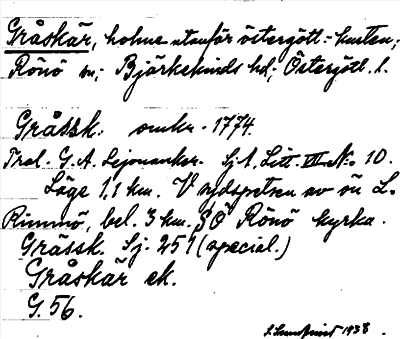 Gråskär, holme utanför östergötl.-kusten;
Rönö sn; Björkekinds hd; Östergötl. l.
Grässk. omkr. 1774.
Prol. G. A. Lejonanker. Sj. 1. Litt. VII No. 10.
Läge 1,1 km. V sydspetsen av ön L.
Rimmö, bel. 3 km. SÖ Rönö kyrka.
Grässk. Sj. 257 (special.)
Gråskär ek.
G. 56.
1938